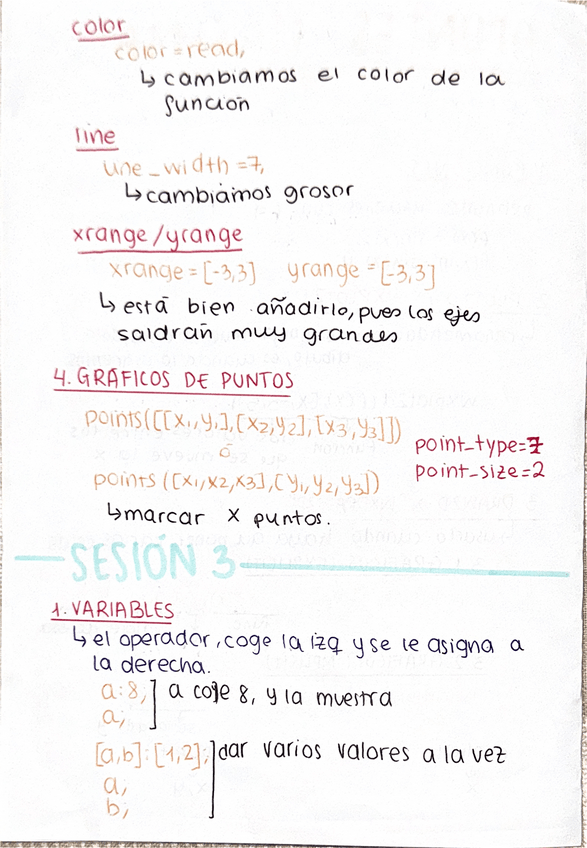 color
color=read,
↳ cambiamos el color de la
función
line
line_width=7,
↳cambiamos grosor
xrange/yrange
xrange=[-3,3] yrange=[-3,3]
↳ está bien añadirlo, pues los ejes
saldrán muy grandes
4. GRÁFICOS DE PUNTOS
points([[x1,y1],[x2,y2],[x3,y3]])
o
points([x1,x2,x3],[y1,y2,y3])
point_type=7
point_size=2
↳marcar x puntos.
SESIÓN 3
1. VARIABLES
↳ el operador, coge la izq y se le asigna a
la derecha.
a:8;] a coje 8, y la muestra
a;
[a,b]:[1,2];] dar varios valores a la vez
a;
b;